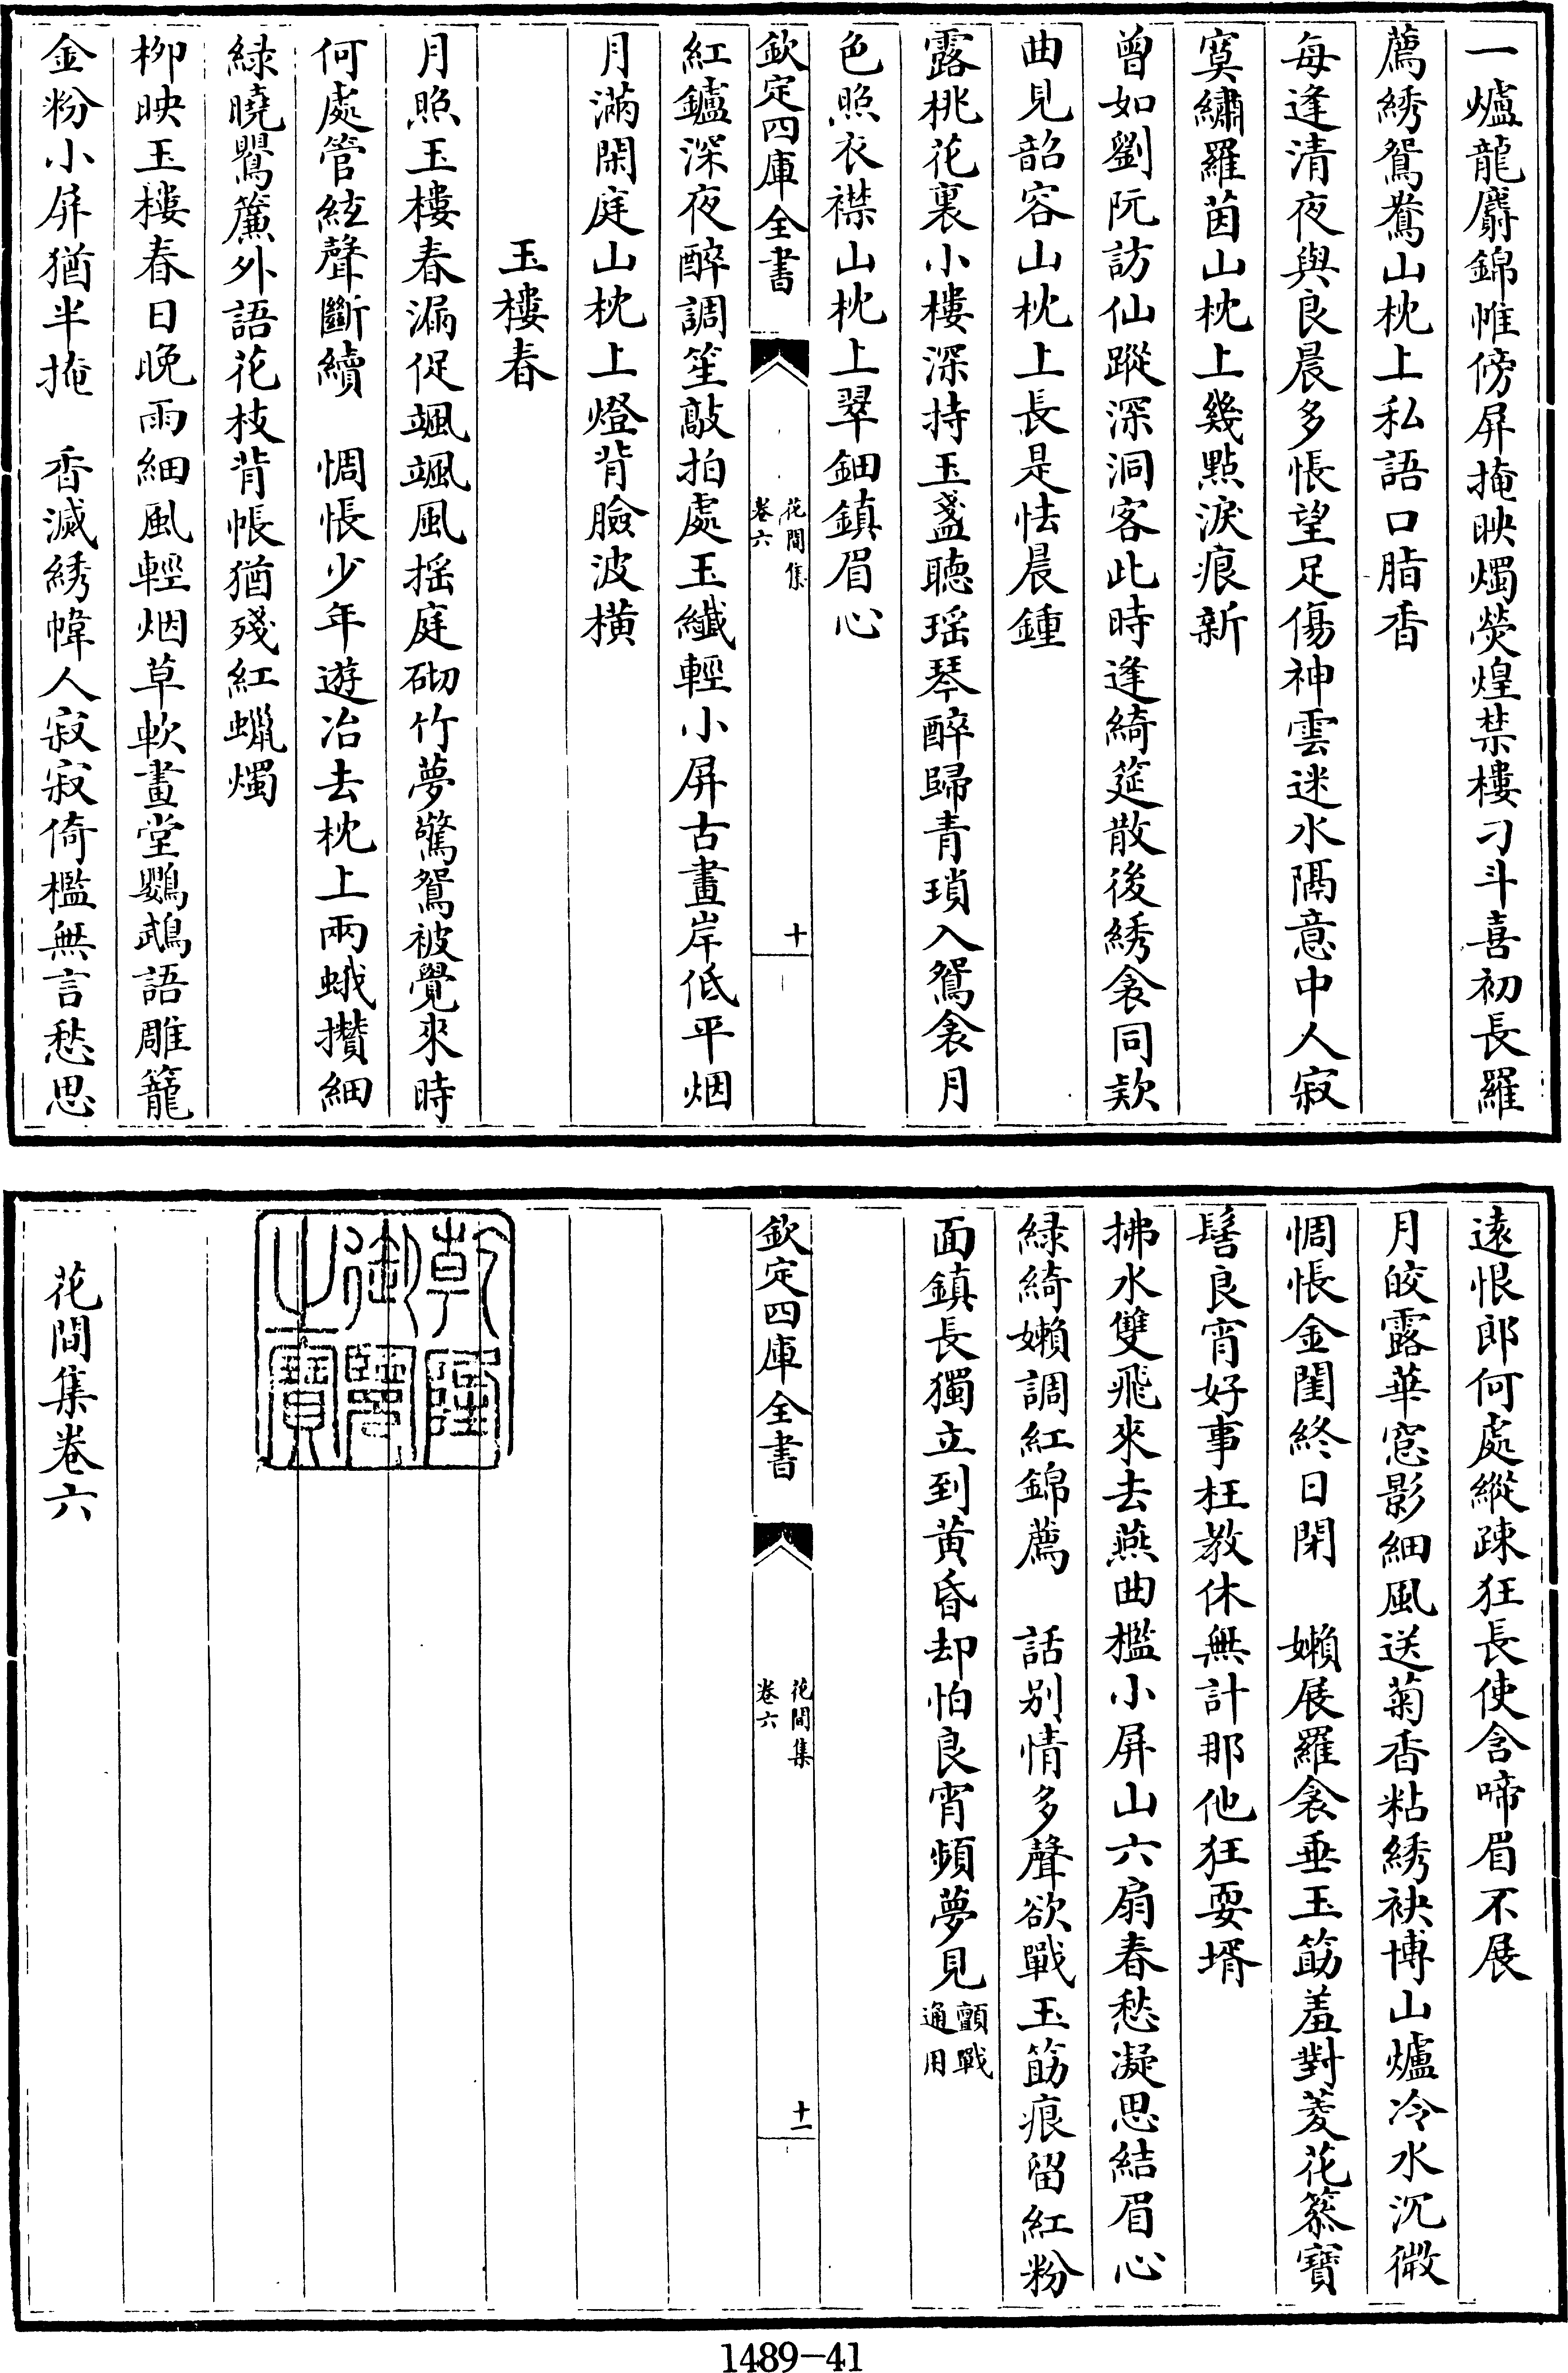 一爐龍麝錦帷傍屏掩映燭熒煌禁樓刁斗喜初長羅
薦綉鴛鴦山枕上私語口脂香
每逢清夜與良晨多悵望足傷神雲迷水隔意中人寂
寞繡羅茵山枕上幾點淚痕新
曾如劉阮訪仙蹤深洞客此時逢綺筵散後綉衾同欵
曲見韶容山枕上長是怯晨鍾
露桃花裏小樓深持玉盞聽瑶琴醉歸青瑣入鴛衾月
色照衣襟山枕上翠鈿鎮眉心
欽定四庫全書
花間集
卷六
十
紅鑪深夜醉調笙敲拍處玉纖輕小屏古畫岸低平烟
月滿閑庭山枕上燈背臉波橫
玉樓春
月照玉樓春漏促颯颯風揺庭砌竹夢驚鴛被覺來時
何處管絃聲斷續　惆悵少年遊冶去枕上兩蛾攢細
緑曉鶯簾外語花枝背帳猶殘紅蠟燭
栁映玉樓春日晚雨細風輕烟草軟畫堂鸚鵡語雕籠
金粉小屏猶半掩　香滅綉幃人寂寂倚檻無言愁思
逺恨郎何處縱疎狂長使含啼眉不展
月皎露華窓影細風送菊香粘綉袂博山爐冷水沉微
惆悵金閨終日閉　嬾展羅衾垂玉筯羞對菱花篸寶
髻良宵好事枉教休無計那他狂耍壻
拂水雙飛來去燕曲檻小屏山六扇春愁凝思結眉心
緑綺嬾調紅錦薦　話别情多聲欲戰玉筯痕留紅粉
面鎮長獨立到黄昏却怕良宵頻夢見顫戰通用
欽定四庫全書
花間集
卷六
十一
乾隆御覽之寶
花間集卷六
1489-41